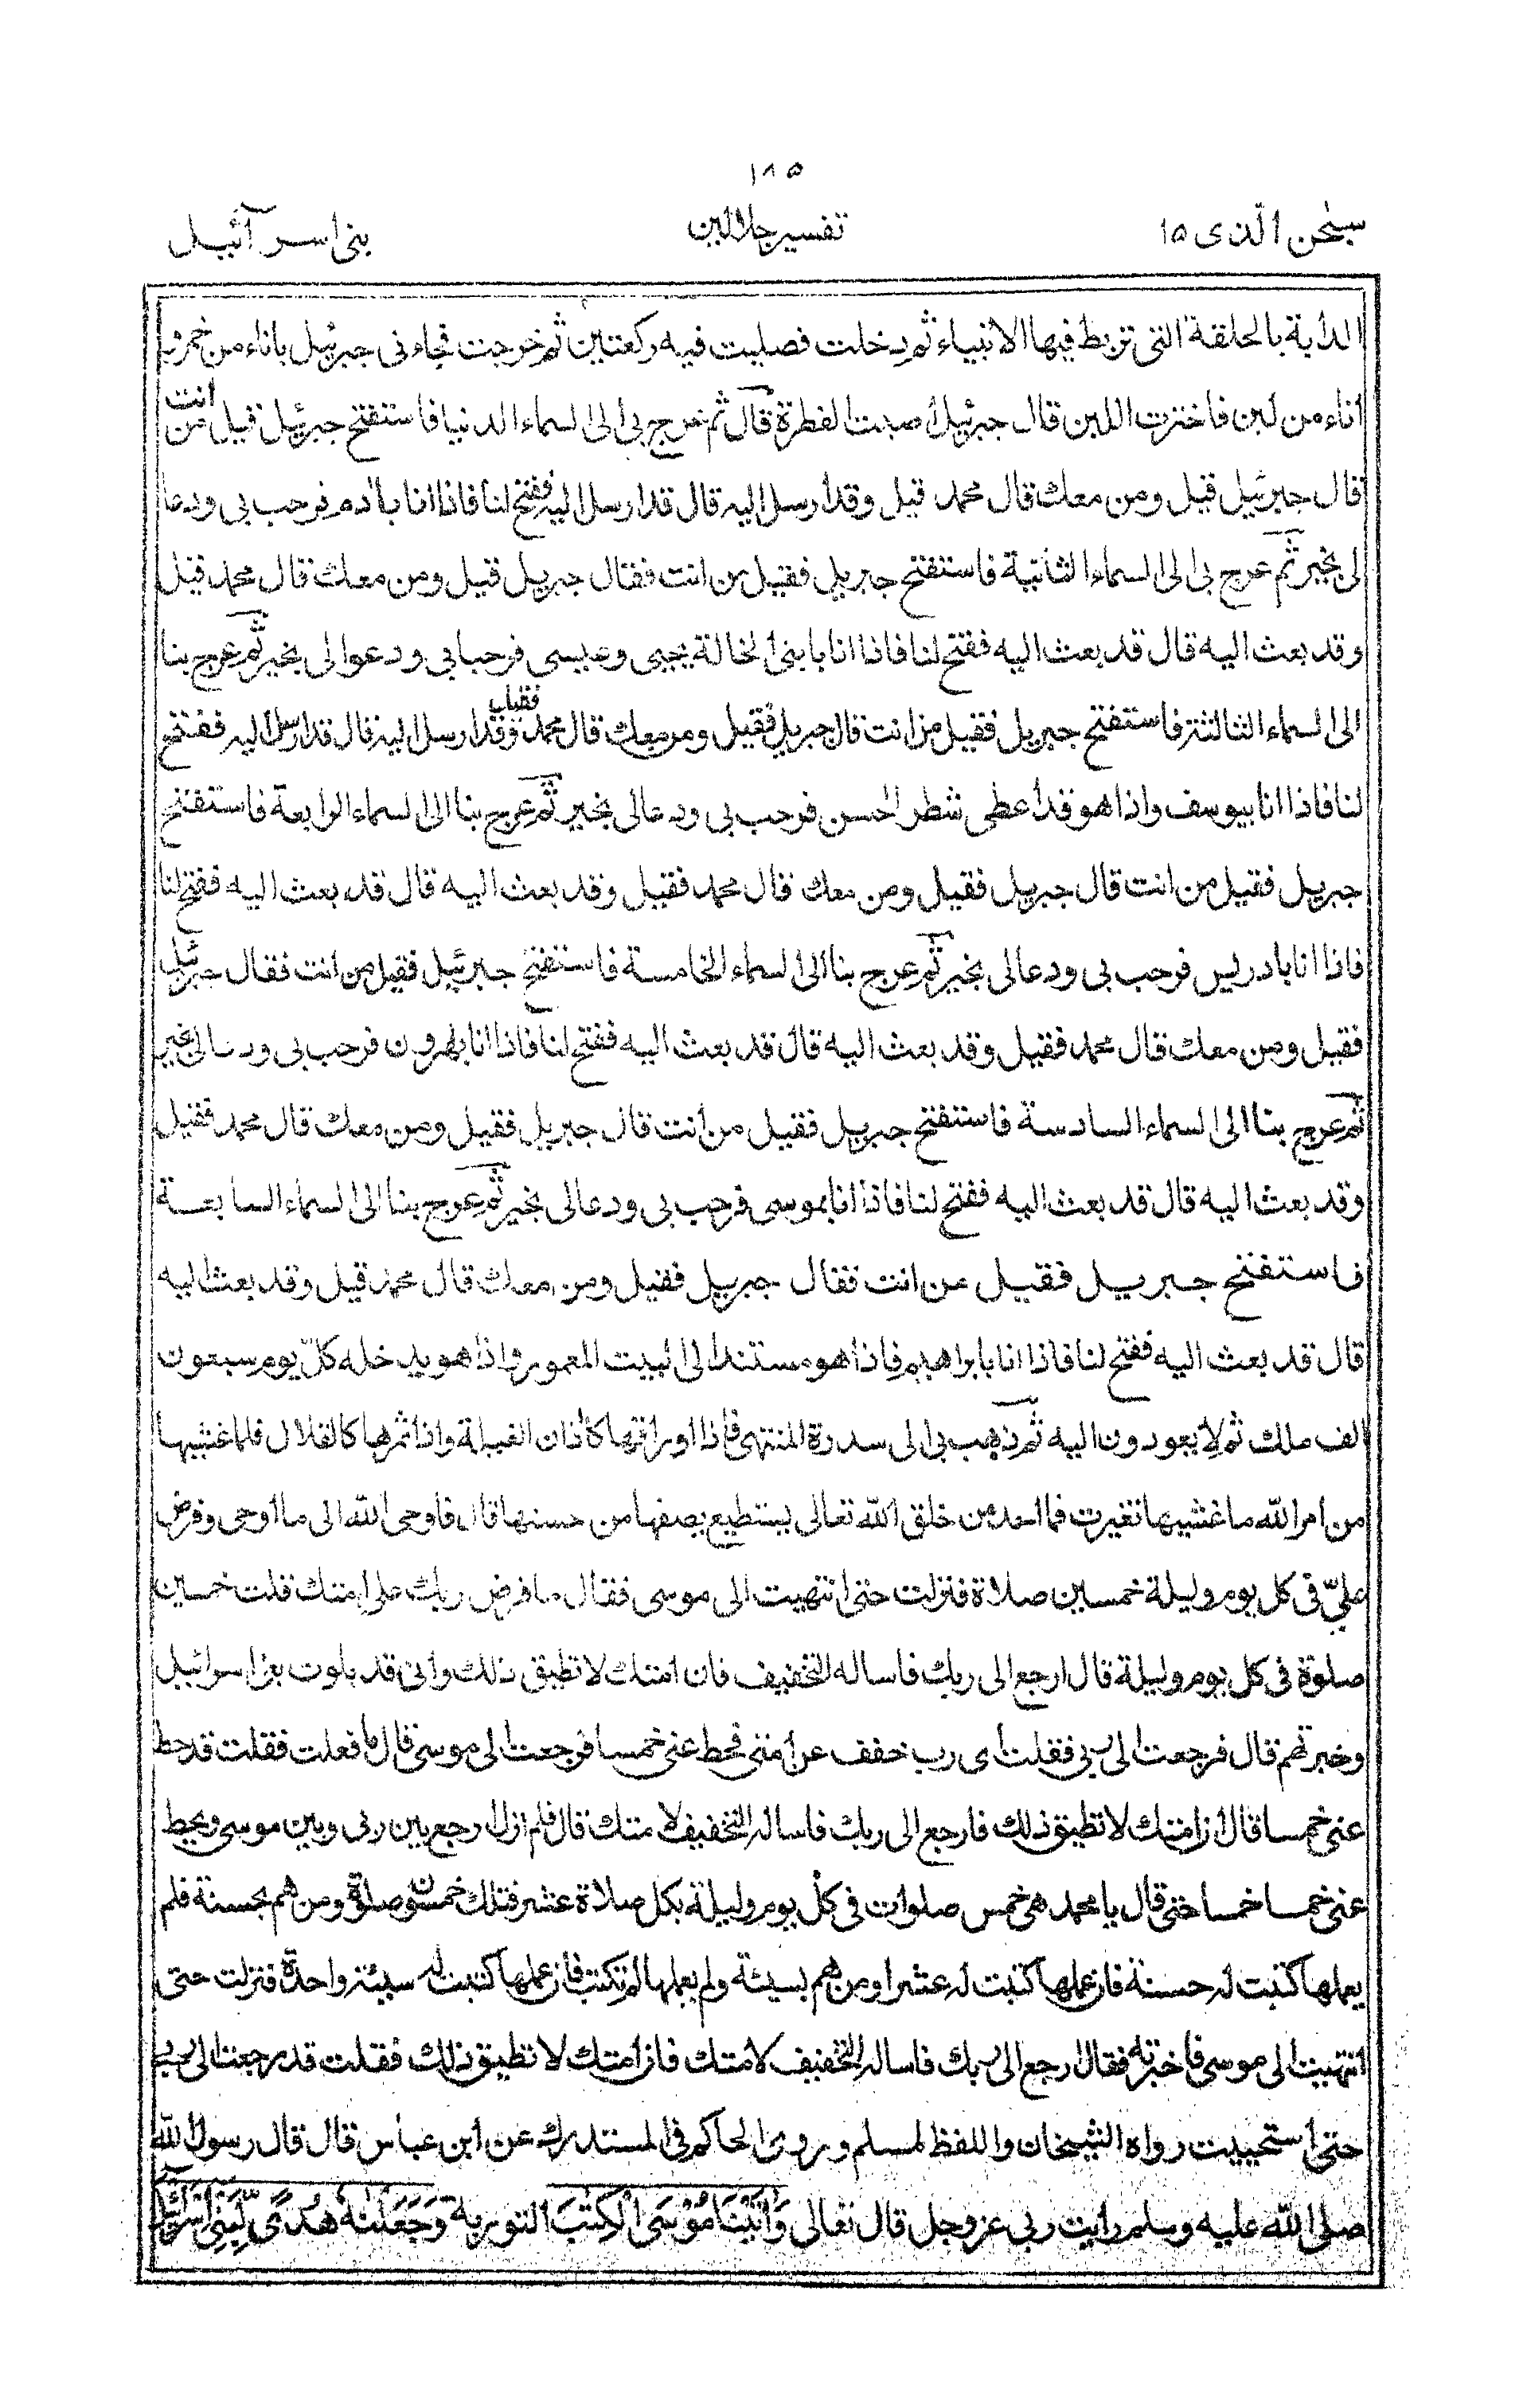 ١٨٥
سبحٰن الذی ١٥
تفسير جلالين
بنی اسرآئیل
الدابة بالحلقة التی تربط فيها الانبياء ثم دخلت فصليت فيه ركعتين ثم خرجت فجاءنی جبرئيل باناء من خمر و
اناء من لبن فاخترت اللبن قال جبرئيل أصبت الفطرة قال ثم عرج بی الی السماء الدنيا فاستفتح جبرئيل قيل من انت
قال جبرئيل قيل ومن معك قال محمد قيل وقد أرسل اليه قال قد ارسل اليه ففتح لنا فاذا انا باٰدم فرحب بی ودعا
لی بخير ثم عرج بی الی السماء الثانية فاستفتح جبريل فقيل من انت فقال جبريل قيل ومن معك قال محمد قيل
وقد بعث اليه قال قد بعث اليه ففتح لنا فاذا انا بابنی الخالة يحيی وعيسی فرحبا بی ودعوا لی بخير ثم عرج بنا
الی السماء الثالثة فاستفتح جبريل فقيل من انت قال جبريل فقيل ومن معك قال محمد فقيل وقد ارسل اليه قال قد ارسل اليه ففتح
لنا فاذا انا بيوسف واذا هو قد أعطی شطر الحسن فرحب بی ودعا لی بخير ثم عرج بنا الی السماء الرابعة فاستفتح
جبريل فقيل من انت قال جبريل فقيل ومن معك قال محمد فقيل وقد بعث اليه قال قد بعث اليه ففتح لنا
فاذا انا بادريس فرحب بی ودعا لی بخير ثم عرج بنا الی السماء الخامسة فاستفتح جبرئيل فقيل من انت فقال جبرئيل
فقيل ومن معك قال محمد فقيل وقد بعث اليه قال قد بعث اليه ففتح لنا فاذا انا بهرون فرحب بی ودعا لی بخير
ثم عرج بنا الی السماء السادسة فاستفتح جبريل فقيل من انت قال جبريل فقيل ومن معك قال محمد فقيل
وقد بعث اليه قال قد بعث اليه ففتح لنا فاذا انا بموسی فرحب بی ودعا لی بخير ثم عرج بنا الی السماء السابعة
فاستفتح جبريل فقيل من انت فقال جبريل فقيل ومن معك قال محمد قيل وقد بعث اليه
قال قد بعث اليه ففتح لنا فاذا انا بابراهيم فاذا هو مستند الی البيت المعمور واذا هو يدخله كل يوم سبعون
الف ملك ثم لا يعودون اليه ثم ذهب بی الی سدرة المنتهی فاذا اوراقها كاٰذان الفيلة واذا ثمرها كالقلال فلما غشيها
من امر الله ما غشيها تغيرت فما احد من خلق الله تعالی يستطيع يصفها من حسنها قال فاوحی الله الی ما اوحی وفرض
علیّ فی كل يوم وليلة خمسين صلاة فنزلت حتی انتهيت الی موسی فقال ما فرض ربك علی امتك قلت خمسين
صلوة فی كل يوم وليلة قال ارجع الی ربك فاساله التخفيف فان امتك لا تطيق ذلك وانی قد بلوت بنی اسرائيل
وخبرتهم قال فرجعت الی ربی فقلت ای رب خفف عن أمتی فحط عنی خمسا فرجعت الی موسی قال ما فعلت فقلت قد حط
عنی خمسا قال ان امتك لا تطيق ذلك فارجع الی ربك فاساله التخفيف لامتك قال فلم ازل ارجع بين ربی وبين موسی ويحط
عنی خمسا خمسا حتی قال يا محمد هی خمس صلوات فی كل يوم وليلة بكل صلاة عشر فتلك خمسون صلوة ومن هم بحسنة فلم
يعملها كتبت له حسنة فان عملها كتبت له عشرا ومن هم بسيئة ولم يعملها لم تكتب فان عملها كتبت له سيئة واحدة فنزلت حتی
انتهيت الی موسی فاخبرته فقال ارجع الی ربك فاساله التخفيف لامتك فان امتك لا تطيق ذلك فقلت قد رجعت الی ربی
حتی استحييت رواه الشيخان واللفظ لمسلم وروی الحاكم فی المستدرك عن ابن عباس قال قال رسول الله
صلی الله عليه وسلم رأيت ربی عز وجل قال تعالی وَاٰتَيْنَا مُوْسَی الْكِتٰبَ التورية وَجَعَلْنٰهُ هُدًی لِّبَنِیْ اِسْرَآئِيْلَ